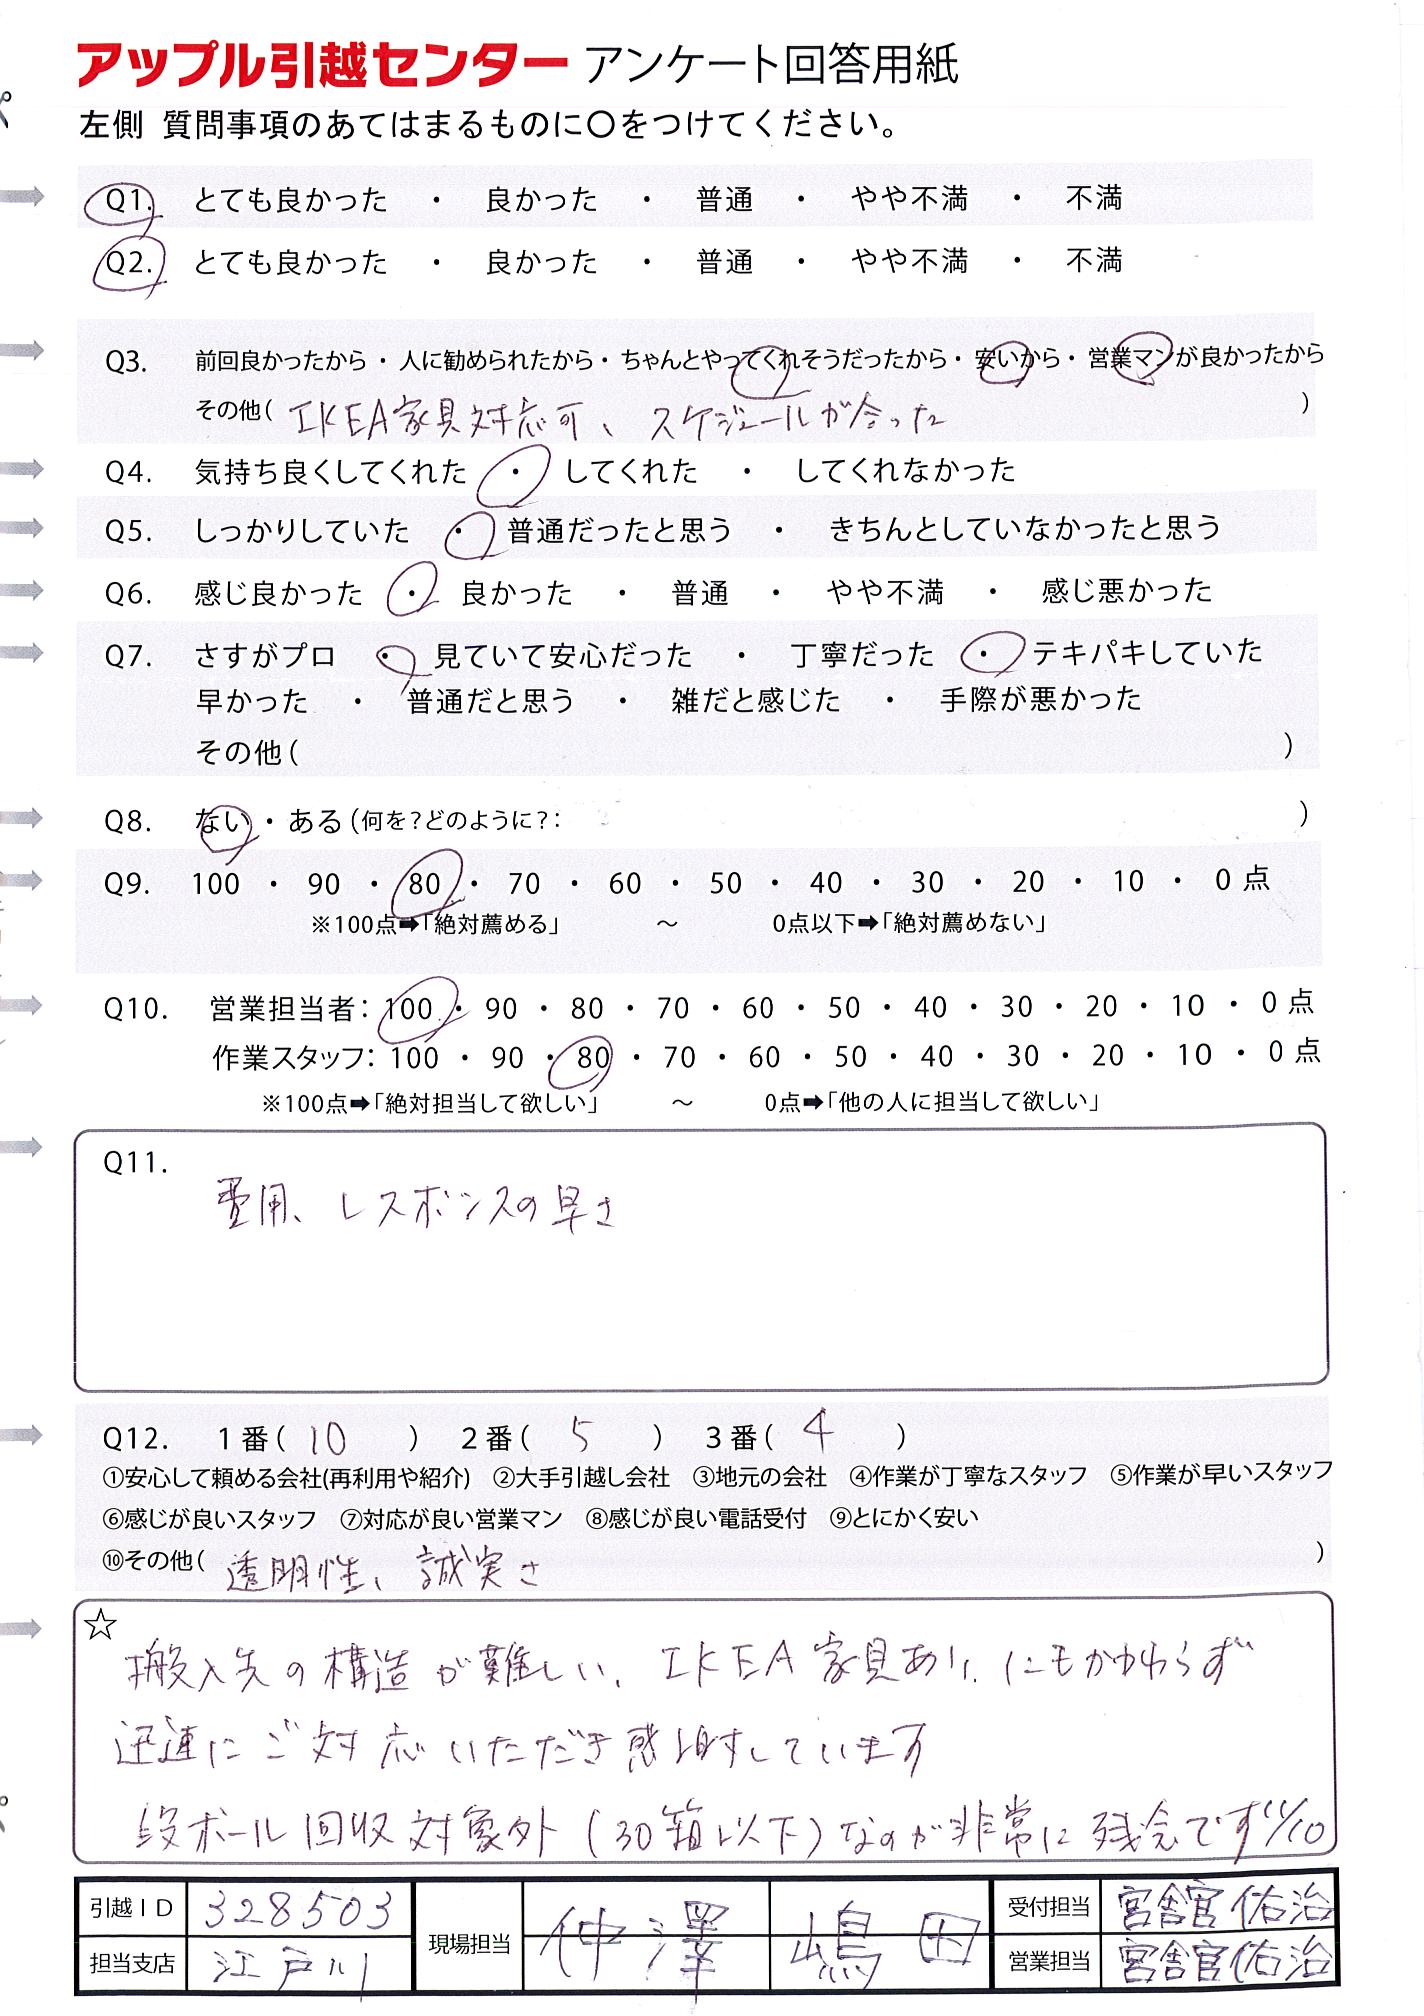 アップル引越センター アンケート回答用紙
左側 質問事項のあてはまるものに〇をつけてください。
Q1. とても良かった ・ 良かった ・ 普通 ・ やや不満 ・ 不満
Q2. とても良かった ・ 良かった ・ 普通 ・ やや不満 ・ 不満
Q3. 前回良かったから・人に勧められたから・ちゃんとやってくれそうだったから・安いから・営業マンが良かったから
その他( IKEA家具対応可、スケジュールが合った )
Q4. 気持ち良くしてくれた ・ してくれた ・ してくれなかった
Q5. しっかりしていた ・ 普通だったと思う ・ きちんとしていなかったと思う
Q6. 感じ良かった ・ 良かった ・ 普通 ・ やや不満 ・ 感じ悪かった
Q7. さすがプロ ・ 見ていて安心だった ・ 丁寧だった ・ テキパキしていた
早かった ・ 普通だと思う ・ 雑だと感じた ・ 手際が悪かった
その他( )
Q8. ない・ある(何を?どのように?: )
Q9. 100 ・ 90 ・ 80 ・ 70 ・ 60 ・ 50 ・ 40 ・ 30 ・ 20 ・ 10 ・ 0点
※100点➡「絶対薦める」 ～ 0点以下➡「絶対薦めない」
Q10. 営業担当者: 100 ・ 90 ・ 80 ・ 70 ・ 60 ・ 50 ・ 40 ・ 30 ・ 20 ・ 10 ・ 0点
作業スタッフ: 100 ・ 90 ・ 80 ・ 70 ・ 60 ・ 50 ・ 40 ・ 30 ・ 20 ・ 10 ・ 0点
※100点➡「絶対担当して欲しい」 ～ 0点➡「他の人に担当して欲しい」
Q11.
費用、レスポンスの早さ
Q12. 1番( 10 ) 2番( 5 ) 3番( 4 )
①安心して頼める会社(再利用や紹介) ②大手引越し会社 ③地元の会社 ④作業が丁寧なスタッフ ⑤作業が早いスタッフ
⑥感じが良いスタッフ ⑦対応が良い営業マン ⑧感じが良い電話受付 ⑨とにかく安い
⑩その他( 透明性、誠実さ )
☆
搬入先の構造が難しい、IKEA家具あり、にもかかわらず
迅速にご対応いただき感謝しています
段ボール回収対象外(30箱以下)なのが非常に残念です 11/10
引越ID 328503 現場担当 仲澤 嶋田 受付担当 宮舎官佑治
担当支店 江戸川 営業担当 宮舎官佑治